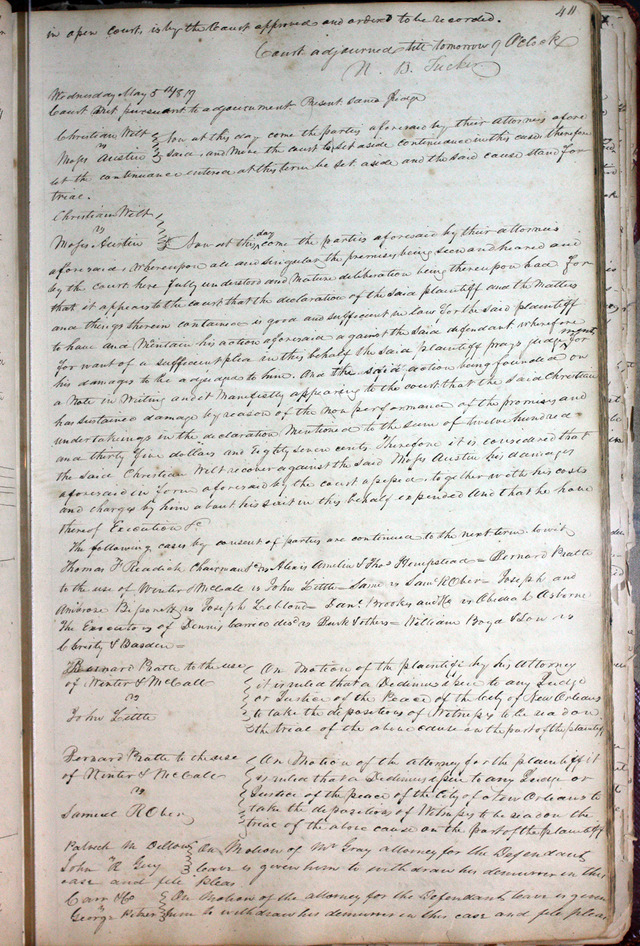 411
in open court, is by the Court approved and ordered to be recorded.
Court adjourned till tomorrow 9 OClock
N. B. Tucker
Wednesday May 5th 1819
Court Met pursuant to adjournment Present same Judge
Christian Wilt
vs
Moses Austin
Now at this day come the parties aforesaid by their Attornies afore
said, and Move the court to set aside continuance in this case, therefore
let the continuance entered at this term be set aside and the said cause stand for
trial.
Christian Wilt
vs
Moses Austin
Now at this day come the parties aforesaid by their attornies
aforesaid, Whereupon all and singular the premises being seen and heared and
by the court here fully understood and Mature deliberation being thereupon had For
that it appears to the court that the declaration of the said plaintiff and the Matters
and things therein contained is good and sufficient in law for the said plaintiff
to have and Mentain his action aforesaid against the said defendant wherefore
for want of a sufficient plea in this behalf the said plaintiff prays judgment for
his damages to be adjudged to him. And the said action being founded on
a Note in Writing and it Manifestly appearing to the court that the said Christian
has sustained damage by reason of the non performance of the promises and
undertakings in the declaration Mentioned to the sum of twelve hundred
and thirty five dollars and Eighty seven cents. Therefore it is considered that
the said Christian Wilt recover against the said Moses Austin his damages
aforesaid in form aforesaid by the court assessed, together with his costs
and charges by him about his suit in this behalf expended And that he have
thereof Execution &c
The following cases by consent of parties are continued to the next term towit
Thomas F Readick Chairman &c vs Alexis Amelin & Thos Hempstead = Bernard Pratte
to the use of Winter & McCall vs John Little = Same vs Saml R Ober = Joseph and
Ambrose Bisonett vs Joseph Leblond = Danl Brooks and Co vs Obediah Osborne
The Executors of Dennis Carrico decd vs Burk & others = William Boyd & Son vs
Christy & Basden =
Bernard Pratte to the use
of Winter & McCall
vs
John Little
On Motion of the plaintiff by his Attorney
it is ruled that a Dedimus issue to any Judge
or Justice of the Peace of the City of New Orleans
to take the depositions of Witnesses to be read on
the trial of the above cause on the part of the plaintiff
Bernard Pratte to the use
of Winter & McCall
vs
Samuel R Ober
On Motion of the attorney for the plaintiff it
is ruled that a Dedimus issue to any Judge or
Justice of the peace of the City of New Orleans to
take the depositions of Witnesses to be read on the
trial of the above cause on the part of the plaintiff
Patrick M Dillon
vs
John R Guy
On Motion of Mr Gray attorney for the Defendant
leave is given him to withdraw his demurrer in this
case and file pleas
Carr & Co
vs
George
On Motion of the attorney for the Defendant leave is given
him to withdraw his demurrer in this case and file pleas